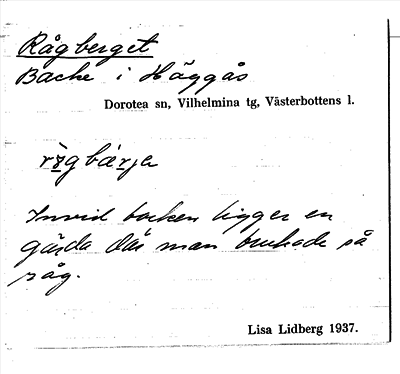 Rågberget
Backe i Häggås
Dorotea sn, Vilhelmina tg, Västerbottens l.
Invid backen ligger en
gärda där man brukade så
råg.
Lisa Lidberg 1937.